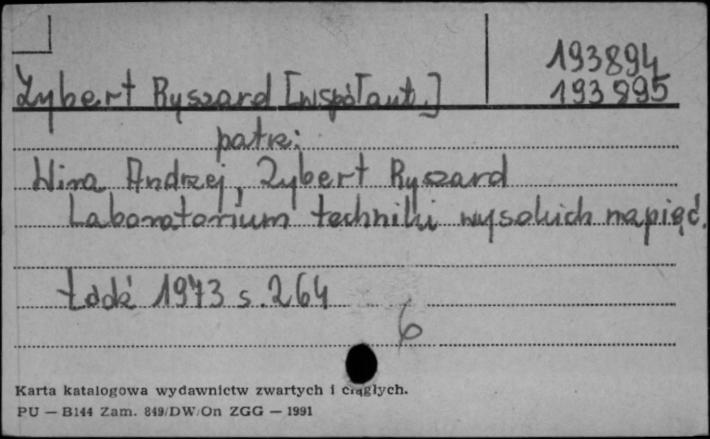 193894
193895
Zybert Ryszard [współaut.]
patrz:
Wira Andrzej, Zybert Ryszard
Laboratorium techniki wysokich napięć.
Łódź 1973 s. 264
6
Karta katalogowa wydawnictw zwartych i ciągłych.
PU — B144 Zam. 849/DW/On ZGG — 1991